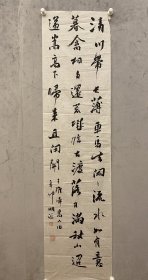 清川帶長薄車馬去閑閑流水如有意
暮禽相與還荒城臨古渡落日滿秋山迢
遞嵩高下歸來且閉關